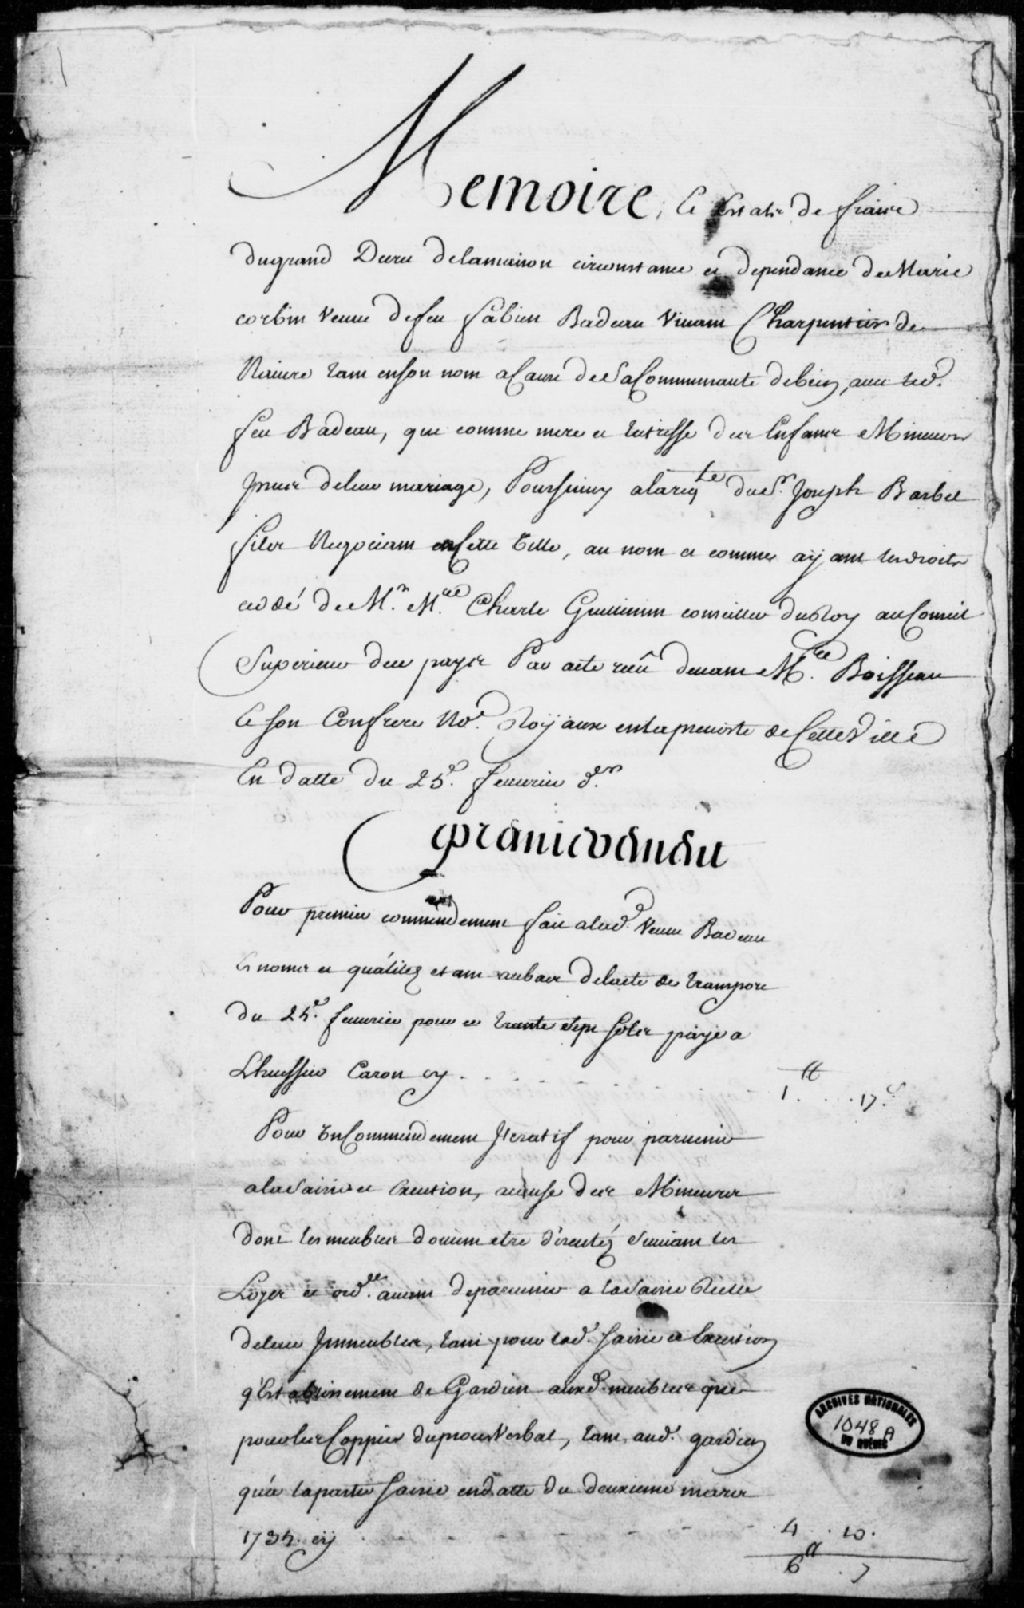 Memoire, Et Estat de fraix
du grand Decret de la maison circonstance et dependance de Marie
corbin veuve de feu fabien Badeau vivant Charpentier de
Navire tant en son nom a Cause de Sa Communauté de biens avec led.
feu Badeau, que comme mere et tutrisse des Enfans Mineurs
Jssus de leur mariage, Poursuivy a la reqte du Sr. Joseph Barbel
filer Negociant en Cette Ville, au nom et comme ayant les droits
ceddé de Mr. Me. Charle Guillimin conseiller du Roy au Conseil
Superieur de ce payis Par acte receu devant Me. Boisseau
Et Son Confrere No.e Royaux en la prevosté de Cette Ville
En datte du 25e. fevrier d.er
Pour premier commendement fait a lad. Veuve Badeau
Es noms et quálitez estant au bas de l'acte de transport
du 25e. fevrier pour ce trente sept sols payé a
L'huissier Caron cy . . . . . . 1 tt . . . 17 s
Pour Un Commendement Jteratif pour parvenir
a la Saisie et Execution, a cause des Mineurs
dont les meubles doivent etre d'iscutéz Suivant les
Loyx et ord.ce avant de parvenir a la Saisie Réelle
de leurs Jmmeubles, tant pour lad. Saisie et Execution
qu'Establissement de Gardien auxd. meubles que
pour les Coppies du procés Verbal, tant aud. gardien
qu'a la partie Saisie en datte du deuxieme mars
1735 cy . . . . . 4 . 10 .
6 tt . 7
ARCHIVES NATIONALES
1048 A
DU QUÉBEC